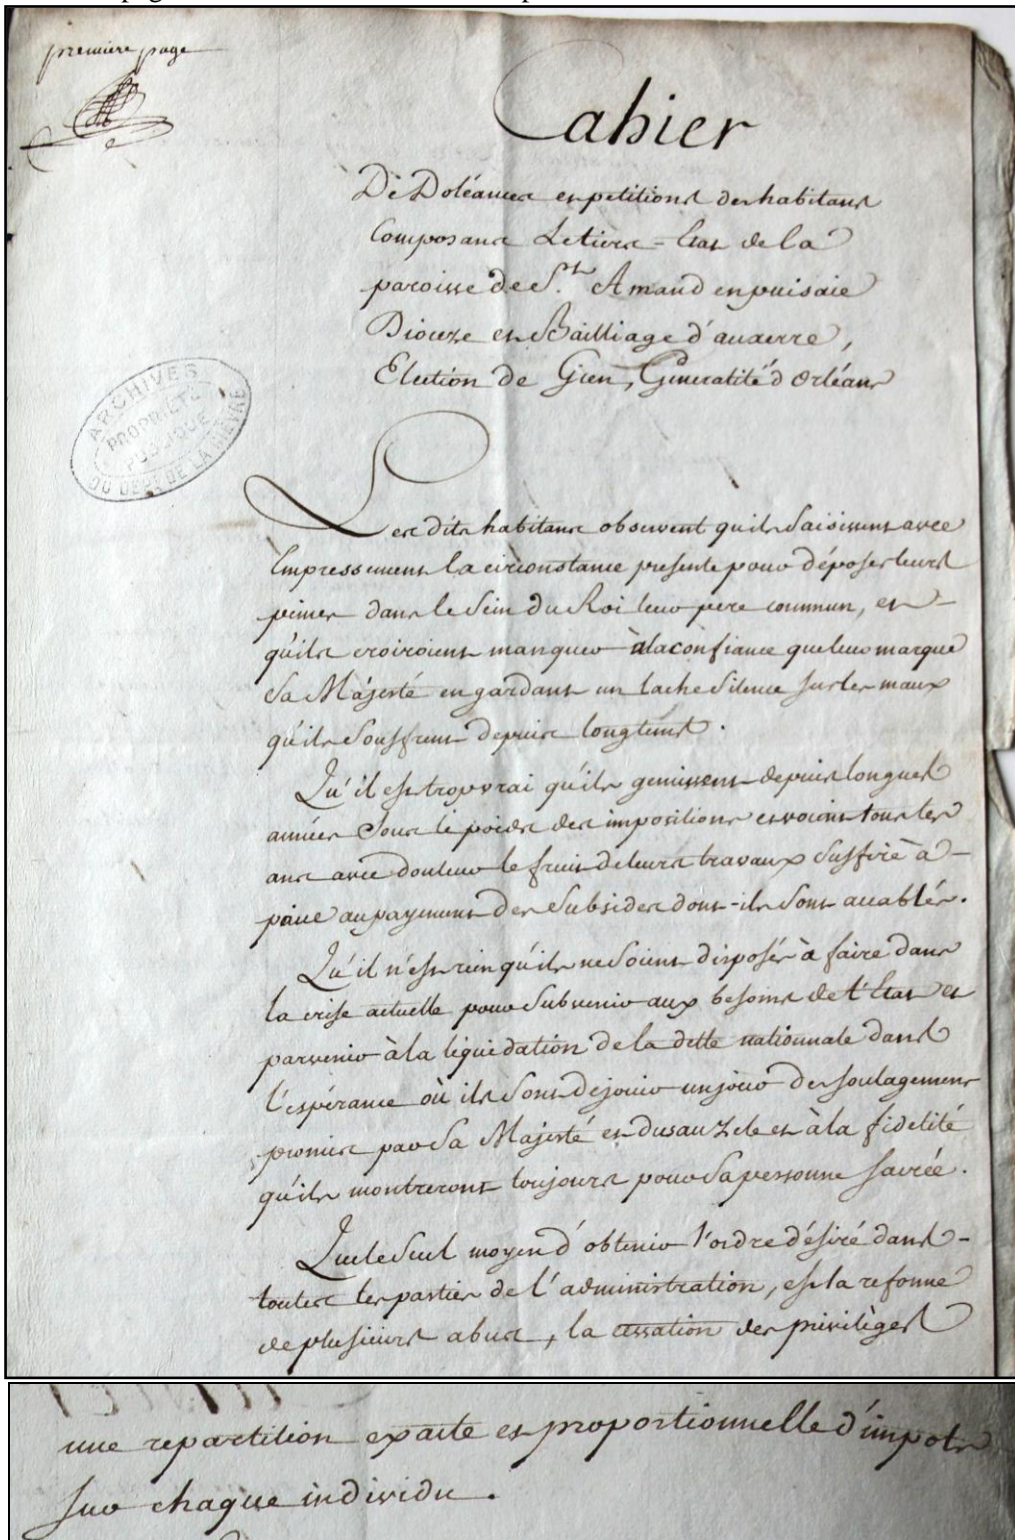 première page
Cahier
De Doléances et petitions des habitans
Composans Le tiers-Etat de la
paroisse de St. Amand en puisaie
Dioceze et Bailliage d'auxerre,
Election de Gien, Generalité d'Orléans
ARCHIVES
PROPRIÉTÉ
PUBLIQUE
DU DEPT DE LA NIEVRE
Les dits habitans observent qu'ils saisissent avec
Empressement la circonstance presente pour déposer leurs
peines dans le sein du Roi leur pere commun, et
qu'ils croiroient manquer à la confiance que leur marque
Sa Majesté en gardant un lache silence sur les maux
qu'ils souffrent depuis longtems.
Qu'il est trop vrai qu'ils gemissent depuis longues
années sous le poids des impositions et voient tous les
ans avec douleur le fruit de leurs travaux suffire à
peine au payement des subsides dont-ils sont accablés.
Qu'il n'est rien qu'ils ne soient disposés à faire dans
la crise actuelle pour subvenir aux besoins de l'Etat et
parvenir à la liquidation de la dette nationnale dans
l'espérance où ils sont de jouir un jour des soulagemens
promis par Sa Majesté et dus au Zele et à la fidelité
qu'ils montreront toujours pour Sa personne sacrée.
Que le seul moyen d'obtenir l'ordre désiré dans
toutes les parties de l'administration, est la reforme
de plusieurs abus, la cessation des privilèges
une repartition exacte et proportionnelle d'impots
sur chaque individu.